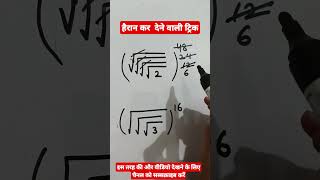 हैरान कर देने वाली ट्रिक
(√√√√2)^48 24 12 6
12
6
(√√√3)^16
इस तरह की और वीडियो देखने के लिए
चैनल को सब्सक्राइब करें